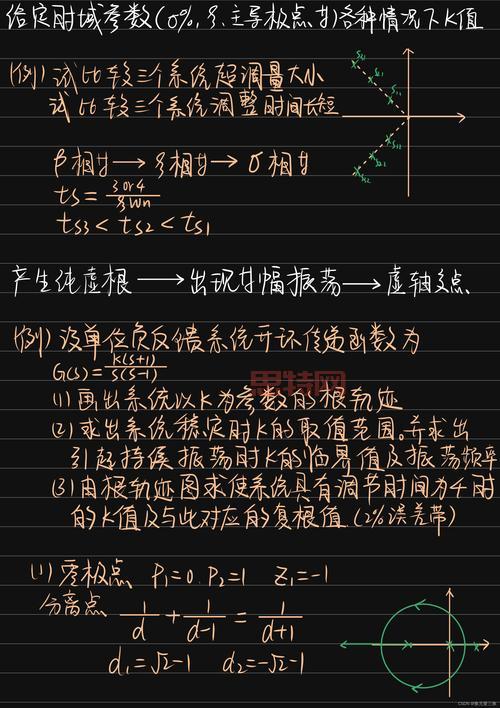 给定时域参数(σ%,ξ,主导极点,β)各种情况下K值
(例)试比较三个系统超调量大小
试比较三个系统调整时间长短
β相等→ξ相等→σ相等
ts=3or4/ξωn
ts3<ts2<ts1
产生纯虚根→出现等幅振荡→虚轴交点
(例)设单位负反馈系统开环传递函数为
G(s)=k(s+1)/s(s-1)
思特网
(1)画出系统以K为参数的根轨迹
(2)求出系统稳定时K的取值范围。并求出
引起持续振荡时K的临界值及振荡频率
(3)由根轨迹图求使系统具有调节时间为4时
的K值及与此对应的复根值.(2%误差带)
(1)零极点 P1=0.P2=1 Z1=-1
分离点 1/d+1/d-1=1/d+1
d1=√2-1 d2=-√2-1